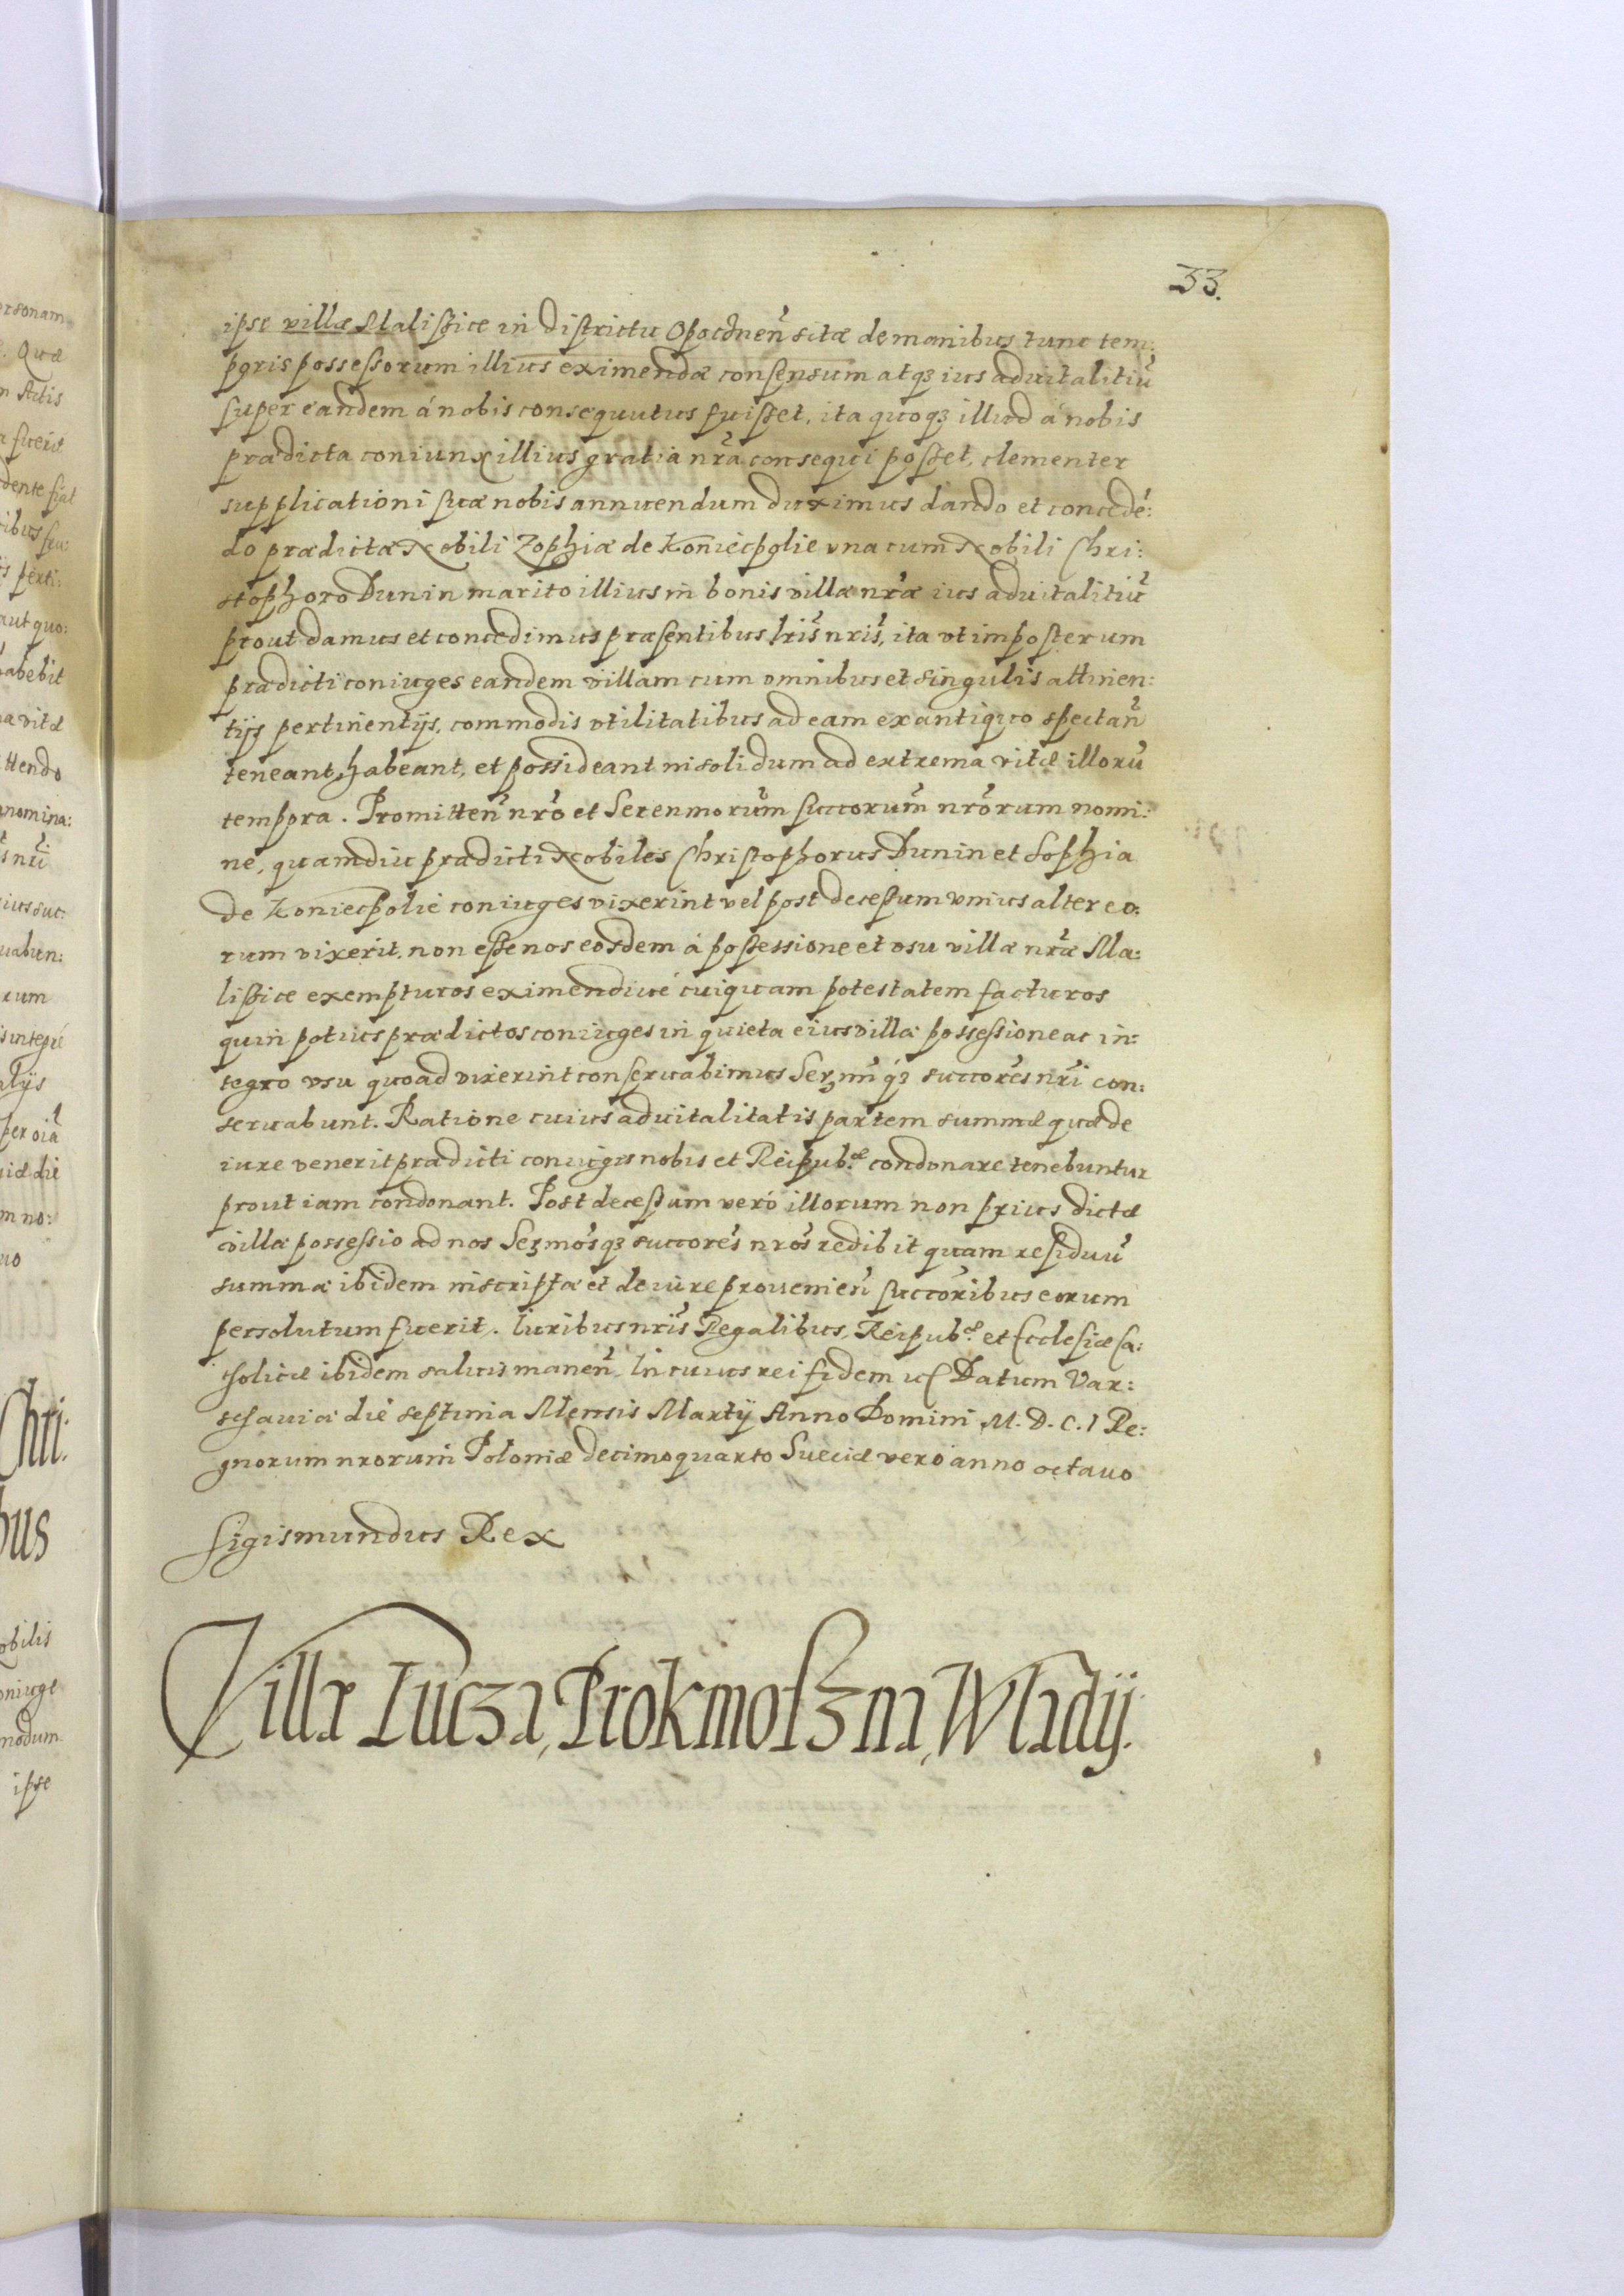 33.
ipse villæ Maliſzice in districtu Opocznen̄ sitæ de manibus tunc tem:
poris possessorum illius eximendæ consensum atqꝫ ius aduitalitiū
super eandem á nobis consequutus fuisset, ita quoqꝫ illud á nobis
prædicta coniunx illius gratia nr̄a consequi posset, clementer
supplicationi suæ nobis annuendum duximus dando et concedē:
do prædictæ Nobili Zophiæ de Koniecpolie vna cum Nobili Chri:
stophoro Dunin marito illius in bonis villæ nr̄æ ius aduitalitiū
prout damus et concedimus præsentibus lr̄is nr̄is, ita vt imposterum
prædicti coniuges eandem villam cum omnibus et singulis attinen:
tijs pertinentijs, commodis vtilitatibus ad eam ex antiquo spectan̄
teneant, habeant, et possideant in solidum ad extrema vitæ illorū
tempora. Promitten̄ nr̄o et Serenmorum̄ succorum̄ nr̄orum nomi:
ne, quamdiu prædicti Nobiles Christophorus Dunin et Sophia
de Koniecpolie coniuges vixerint vel post decessum vnius alter eo:
rum vixerit. non esse nos eosdem á possessione et vsu villæ nr̄æ Ma:
liſzice exempturos eximendiué cuiquam potestatem facturos
quin potius prædictos coniuges in quieta eius villæ possessione ac in:
tegro vsu quoad vixerint conseruabimus Serm̄i qꝫ succores̄ nr̄i con:
seruabunt. Ratione cuius aduitalitatis partem summæ quæ de
iure venerit prædicti coniuges nobis et Reipub.æ condonare tenebuntur
prout iam condonant. Post decessum veró illorum non prius dictæ
villæ possessio ad nos Sermos̄qꝫ succores̄ nr̄os redibit quam residuū
summæ ibidem inscriptæ et de iure prouenien̄ succoribus̄ eorum
persolutum fuerit. Iuribus nr̄is Regalibus, Reipub.æ et Ecclesiæ Ca:
tholicæ ibidem saluis manen̄. In cuius rei fidem Datum Var:
schauiæ die septima Mensis Martij Anno Domini M. D. C. I Re:
gnorum nrorum̄ Poloniæ decimoquarto Sueciæ vero anno octauo
Sigismundus Rex
Villæ Lucza, Prokmosꝫna, Wladij: